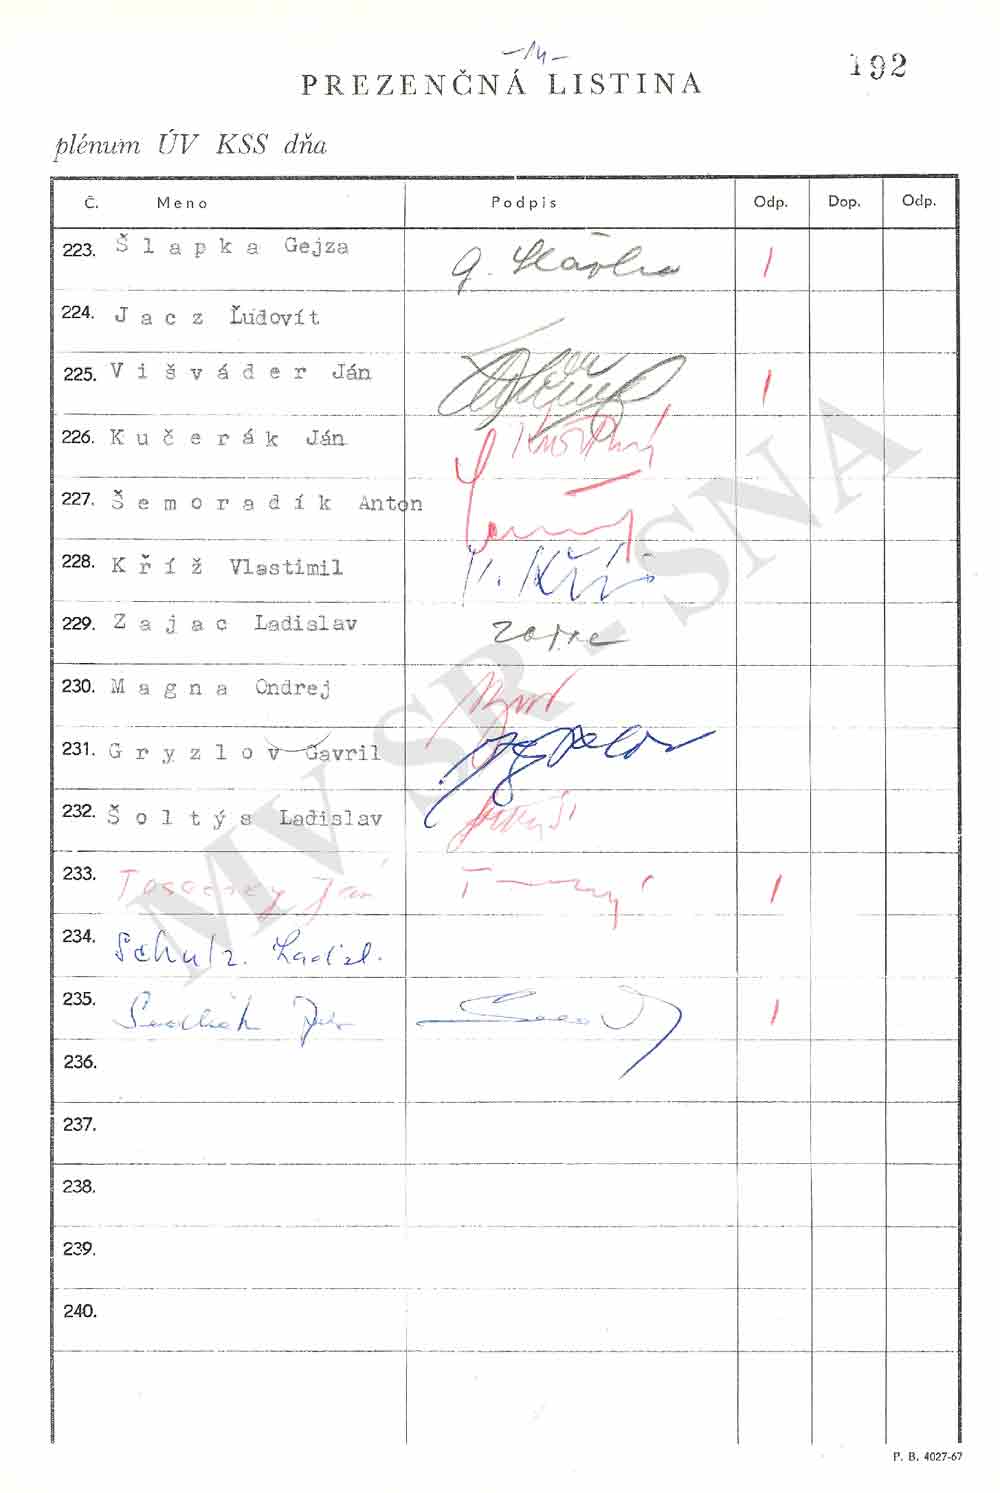 -14-
192
PREZENČNÁ LISTINA
plénum ÚV KSS dňa
Č. Meno Podpis Odp. Dop. Odp.
223. Šlapka Gejza G. Šlapka 1
224. Jacz Ľudovít
225. Višváder Ján 1
226. Kučerák Ján
227. Šemoradík Anton
228. Kříž Vlastimil V. Kříž
229. Zajac Ladislav Zajac
230. Magna Ondrej
231. Gryzlov Gavril
232. Šoltýs Ladislav
233. Ján 1
234. Schulz. Ladisl.
235. 1
236.
237.
238.
239.
240.
MV SR - SNA
P. B. 4027-67